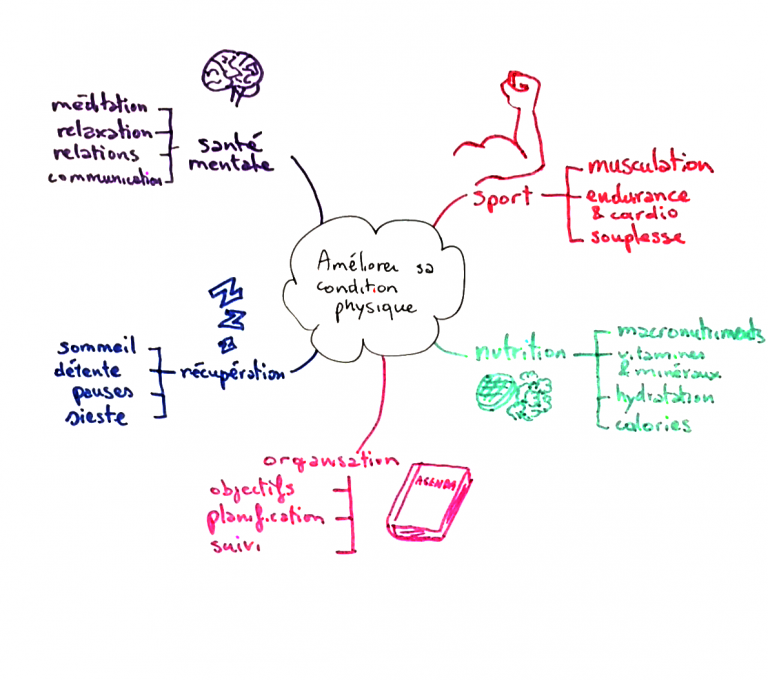 Améliorer sa
condition
physique
sport
musculation
endurance
& cardio
souplesse
nutrition
macronutriments
vitamines
& minéraux
hydratation
calories
organisation
objectifs
planification
suivi
AGENDA
récupération
sommeil
détente
pauses
sieste
santé
mentale
méditation
relaxation
relations
communication